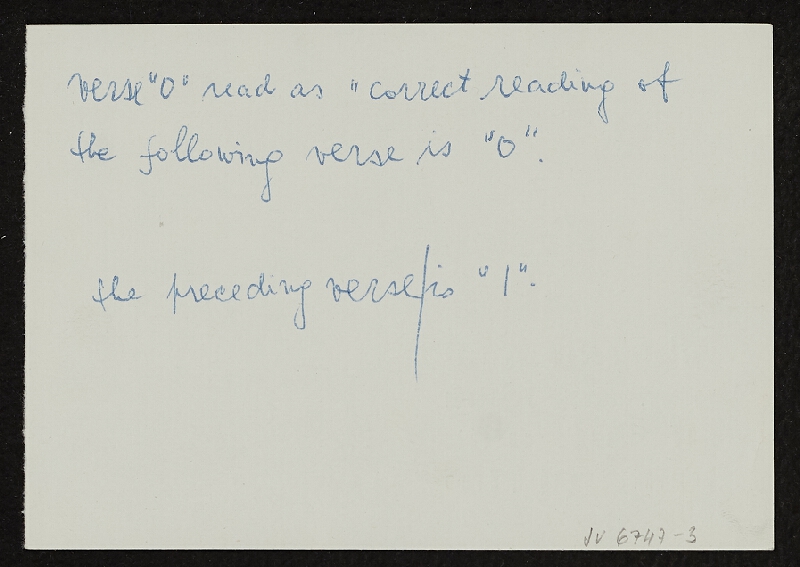 verse "0" read as "correct reading of
the following verse is "0".
the preceding verse/is "1".
JV 6747-3